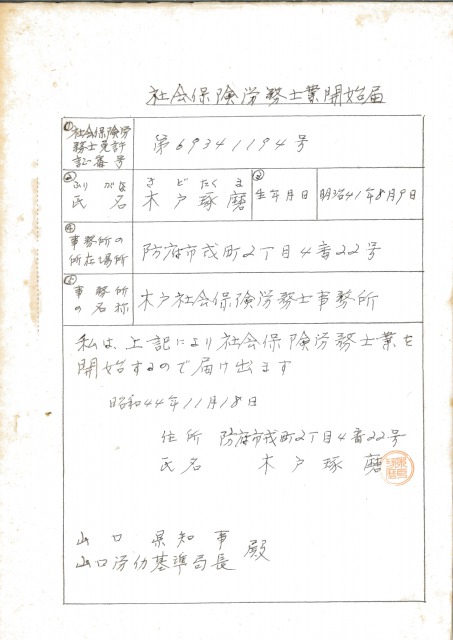 社会保険労務士業開始届
① 社会保険労務士免許証番号
第69341194号
② ふりがな 氏名
きどたくま
木戸琢磨
③ 生年月日
明治41年8月9日
④ 事務所の所在場所
防府市戎町2丁目4番22号
⑤ 事務所の名称
木戸社会保険労務士事務所
私は、上記により社会保険労務士業を
開始するので届け出ます
昭和44年11月18日
住所 防府市戎町2丁目4番22号
氏名 木戸琢磨
山口県知事
山口労働基準局長 殿